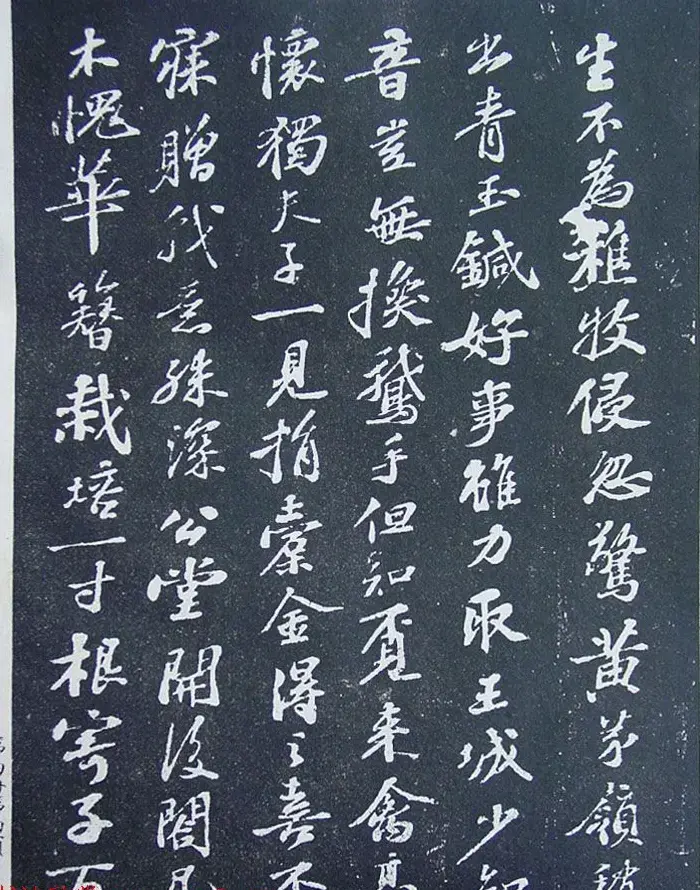 生不為樵牧侵忽驚黃茅嶺
出青玉鍼好事雖力取王城少知
音豈無換鵝手但知覓來禽高
懷獨夫子一見捐橐金得之喜不
寐贈我意殊深公堂開後閤凡
木愧華簪栽培一寸根寄子百